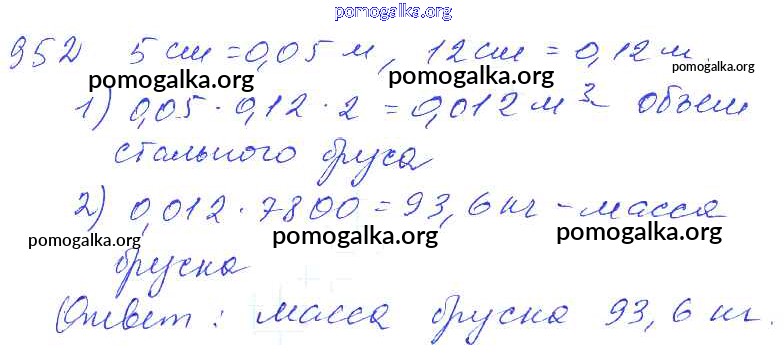 pomogalka.org
952 5 см = 0,05 м, 12 см = 0,12 м.
pomogalka.org pomogalka.org pomogalka.org
1) 0,05 · 0,12 · 2 = 0,012 м³ - объем
стального бруса
2) 0,012 · 7800 = 93,6 кг - масса
pomogalka.org pomogalka.org pomogalka.org
бруска
Ответ: масса бруска 93,6 кг.